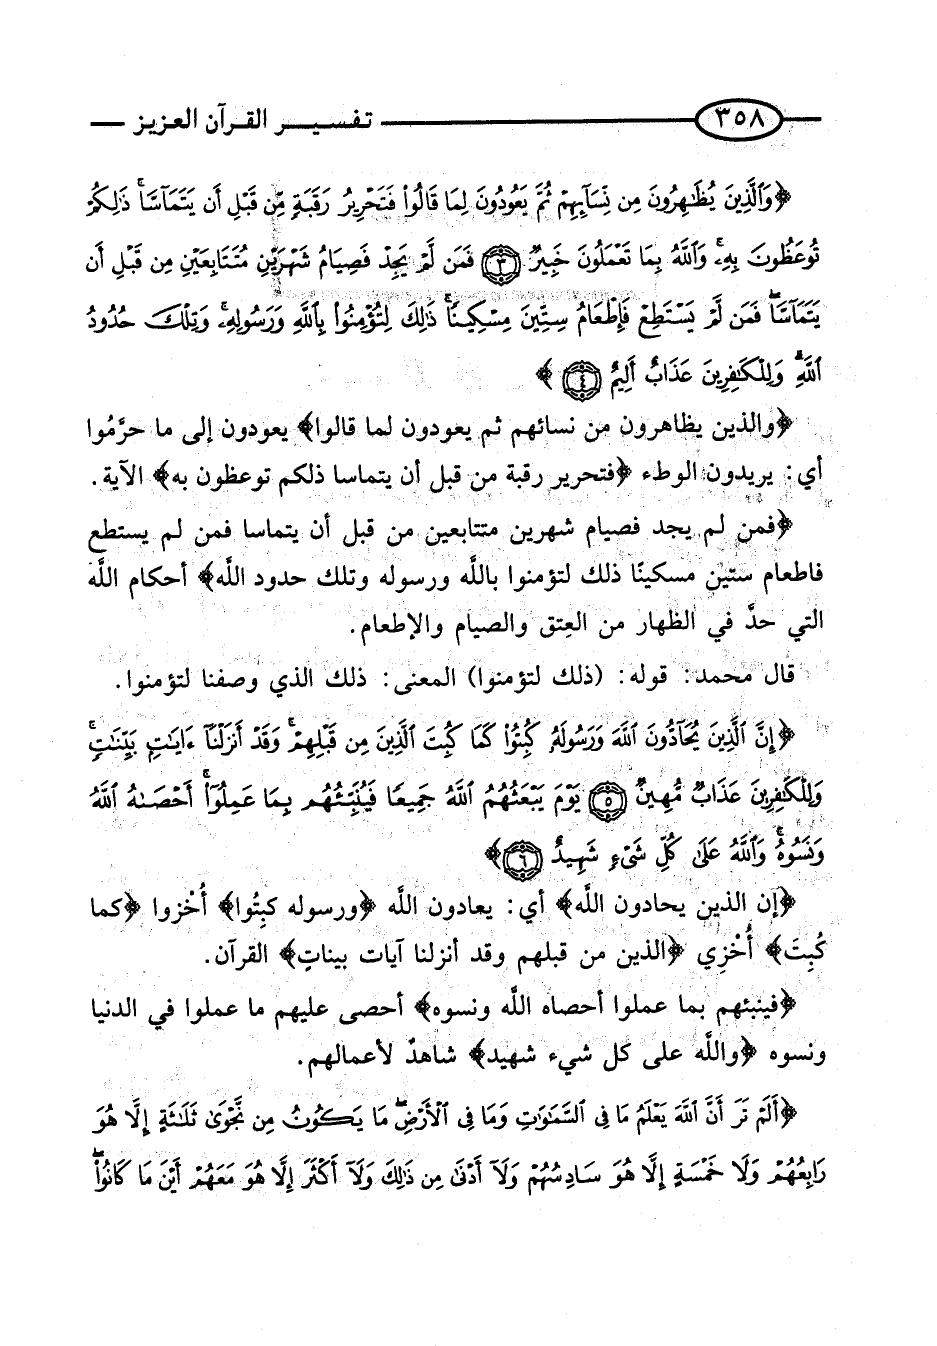 ٣٥٨ تفسير القرآن العزيز
﴿وَٱلَّذِينَ يُظَٰهِرُونَ مِن نِّسَآئِهِمْ ثُمَّ يَعُودُونَ لِمَا قَالُوا۟ فَتَحْرِيرُ رَقَبَةٍ مِّن قَبْلِ أَن يَتَمَآسَّا ۚ ذَٰلِكُمْ
تُوعَظُونَ بِهِۦ ۚ وَٱللَّهُ بِمَا تَعْمَلُونَ خَبِيرٌ ٣ فَمَن لَّمْ يَجِدْ فَصِيَامُ شَهْرَيْنِ مُتَتَابِعَيْنِ مِن قَبْلِ أَن
يَتَمَآسَّا ۖ فَمَن لَّمْ يَسْتَطِعْ فَإِطْعَامُ سِتِّينَ مِسْكِينًا ۚ ذَٰلِكَ لِتُؤْمِنُوا۟ بِٱللَّهِ وَرَسُولِهِۦ ۚ وَتِلْكَ حُدُودُ
ٱللَّهِ ۗ وَلِلْكَٰفِرِينَ عَذَابٌ أَلِيمٌ ٤﴾
﴿والذين يظاهرون من نسائهم ثم يعودون لما قالوا﴾ يعودون إلى ما حرَّمُوا
أي: يريدون الوطء ﴿فتحرير رقبة من قبل أن يتماسا ذلكم توعظون به﴾ الآية.
﴿فمن لم يجد فصيام شهرين متتابعين من قبل أن يتماسا فمن لم يستطع
فاطعام ستين مسكينًا ذلك لتؤمنوا باللَّه ورسوله وتلك حدود اللَّه﴾ أحكام اللَّه
التي حدَّ في الظهار من العِتق والصيام والإطعام.
قال محمد: قوله: (ذلك لتؤمنوا) المعنى: ذلك الذي وصفنا لتؤمنوا.
﴿إِنَّ ٱلَّذِينَ يُحَآدُّونَ ٱللَّهَ وَرَسُولَهُۥ كُبِتُوا۟ كَمَا كُبِتَ ٱلَّذِينَ مِن قَبْلِهِمْ ۚ وَقَدْ أَنزَلْنَآ ءَايَٰتٍۭ بَيِّنَٰتٍ ۚ
وَلِلْكَٰفِرِينَ عَذَابٌ مُّهِينٌ ٥ يَوْمَ يَبْعَثُهُمُ ٱللَّهُ جَمِيعًا فَيُنَبِّئُهُم بِمَا عَمِلُوٓا۟ ۚ أَحْصَىٰهُ ٱللَّهُ
وَنَسُوهُ ۚ وَٱللَّهُ عَلَىٰ كُلِّ شَىْءٍ شَهِيدٌ ٦﴾
﴿إن الذين يحادون اللَّه﴾ أي: يعادون اللَّه ﴿ورسوله كبِتُوا﴾ أُخْزوا ﴿كما
كُبِتَ﴾ أُخْزِي ﴿الذين من قبلهم وقد أنزلنا آيات بيناتٍ﴾ القرآن.
﴿فينبئهم بما عملوا أحصاه اللَّه ونسوه﴾ أحصى عليهم ما عملوا في الدنيا
ونسوه ﴿واللَّه على كل شيء شهيد﴾ شاهدٌ لأعمالهم.
﴿أَلَمْ تَرَ أَنَّ ٱللَّهَ يَعْلَمُ مَا فِى ٱلسَّمَٰوَٰتِ وَمَا فِى ٱلْأَرْضِ ۖ مَا يَكُونُ مِن نَّجْوَىٰ ثَلَٰثَةٍ إِلَّا هُوَ
رَابِعُهُمْ وَلَا خَمْسَةٍ إِلَّا هُوَ سَادِسُهُمْ وَلَآ أَدْنَىٰ مِن ذَٰلِكَ وَلَآ أَكْثَرَ إِلَّا هُوَ مَعَهُمْ أَيْنَ مَا كَانُوا۟ ۖ